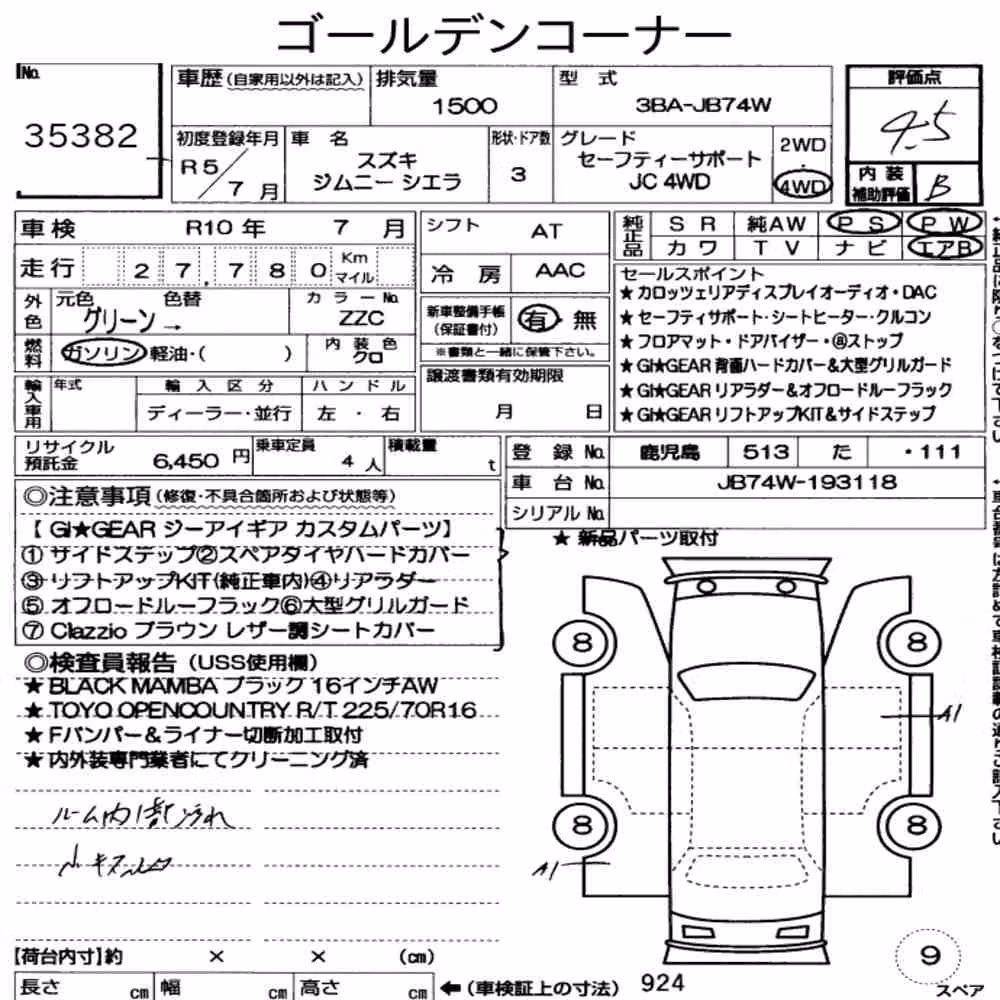 ゴールデンコーナー
No.
35382
車歴 (自家用以外は記入)
排気量
1500
型 式
3BA-JB74W
評価点
4.5
内装補助評価
B
初度登録年月
R5/7月
車 名
スズキ
ジムニー シエラ
形状・ドア数
3
グレード
セーフティーサポート
JC 4WD
2WD
・
4WD
車検 R10年 7月
走行 27,780 Km マイル
外色
元色 色替
グリーン→
カラーNo.
ZZC
燃料
ガソリン 軽油・( )
内装色
クロ
輸入車用
年式
輸入区分
ディーラー・並行
ハンドル
左 ・ 右
シフト AT
冷房 AAC
新車整備手帳
(保証書付)
有・無
※書類と一緒に保管下さい。
譲渡書類有効期限
月 日
純正品
SR 純AW PS PW
カワ TV ナビ エアB
セールスポイント
★カロッツェリアディスプレイオーディオ・DAC
★セーフティサポート・シートヒーター・クルコン
★フロアマット・ドアバイザー・⑧ストップ
★GI★GEAR 背面ハードカバー&大型グリルガード
★GI★GEAR リアラダー&オフロードルーフラック
★GI★GEAR リフトアップKIT&サイドステップ
リサイクル預託金 6,450円
乗車定員 4人
積載量 t
登録No. 鹿児島 513 た ・111
車台No. JB74W-193118
シリアルNo.
◎注意事項(修復・不具合箇所および状態等)
【 GI★GEAR ジーアイギア カスタムパーツ】
①サイドステップ②スペアタイヤハードカバー
③リフトアップKIT(純正車内)④リアラダー
⑤オフロードルーフラック⑥大型グリルガード
⑦Clazzio ブラウン レザー調シートカバー
★ 新品パーツ取付
◎検査員報告(USS使用欄)
★BLACK MAMBA ブラック 16インチAW
★TOYO OPENCOUNTRY R/T 225/70R16
★Fバンパー&ライナー切断加工取付
★内外装専門業者にてクリーニング済
ルーム内
小キズ
8
8
8
8
A1
A1
9
スペア
【荷台内寸】約 × × (cm)
長さ cm 幅 cm 高さ cm
←(車検証上の寸法) 924